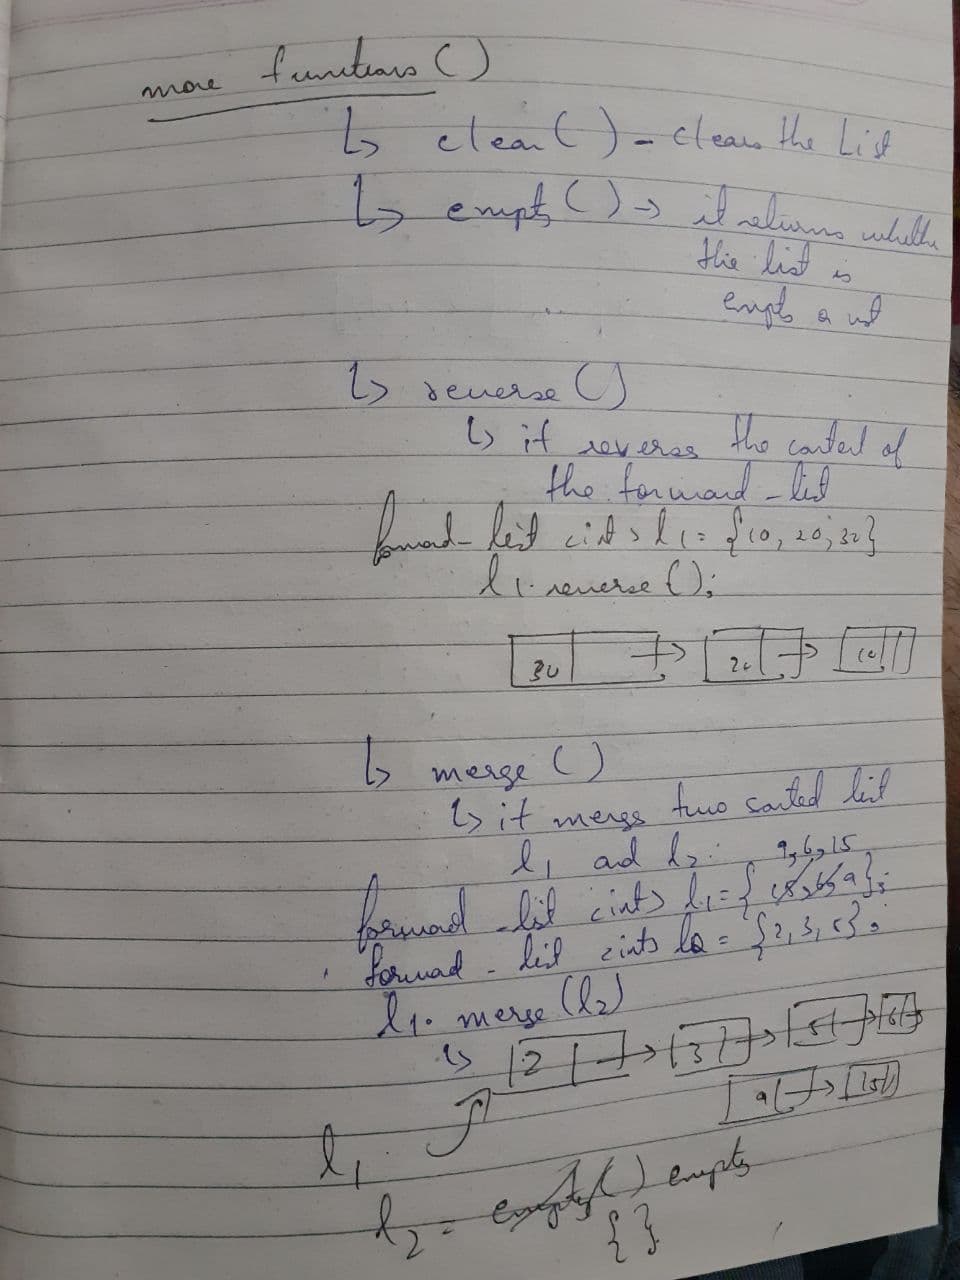 more functions ()
↳ clear() - clears the List
↳ empty() → it returns whether
the list is
empty or not
↳ reverse()
↳ it reverses the content of
the forward-list
forward-list <int> l1 = {10, 20, 30}
l1.reverse();
30 → 20 → 10
↳ merge ()
↳ it merges two sorted list
l1 and l2.
9, 6, 15
forward-list <int> l1 = { };
forward-list <int> l2 = {2, 3, 5};
l1.merge (l2)
↳ 2 → 3 → 5 → 6 →
9 → 15
l1
l2 = empty() empty
{ }